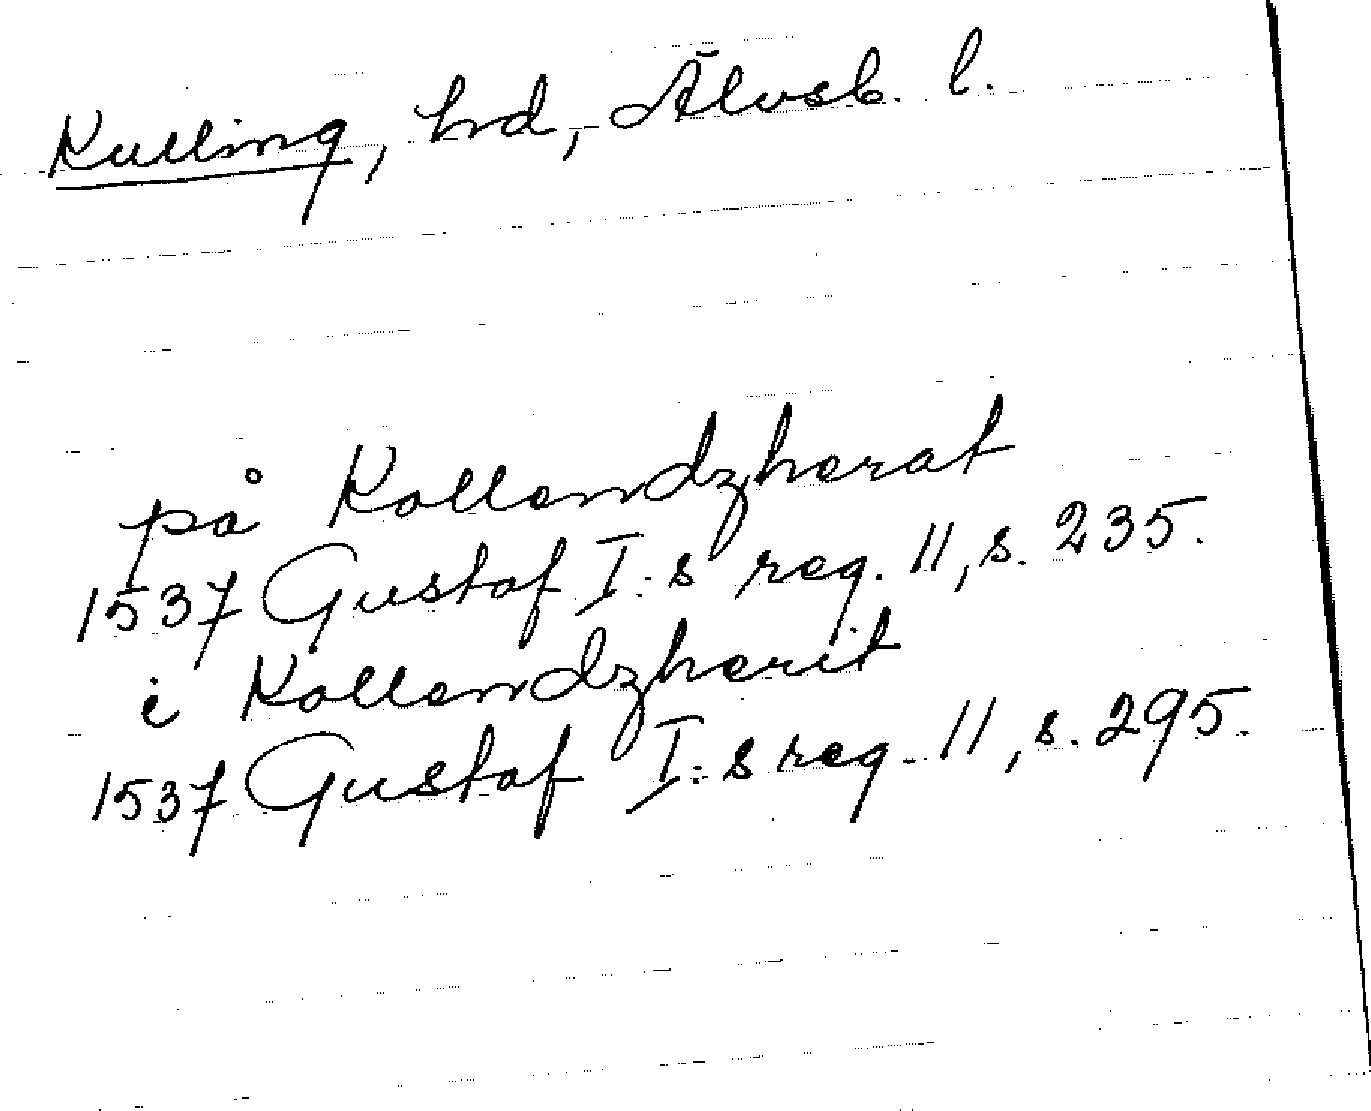 Kulling, hd, Älvsb. l.
på Kollendzherat
1537 Gustaf I:s reg. 11, s. 235.
i Kollendzherit
1537 Gustaf I:s reg. 11, s. 295.